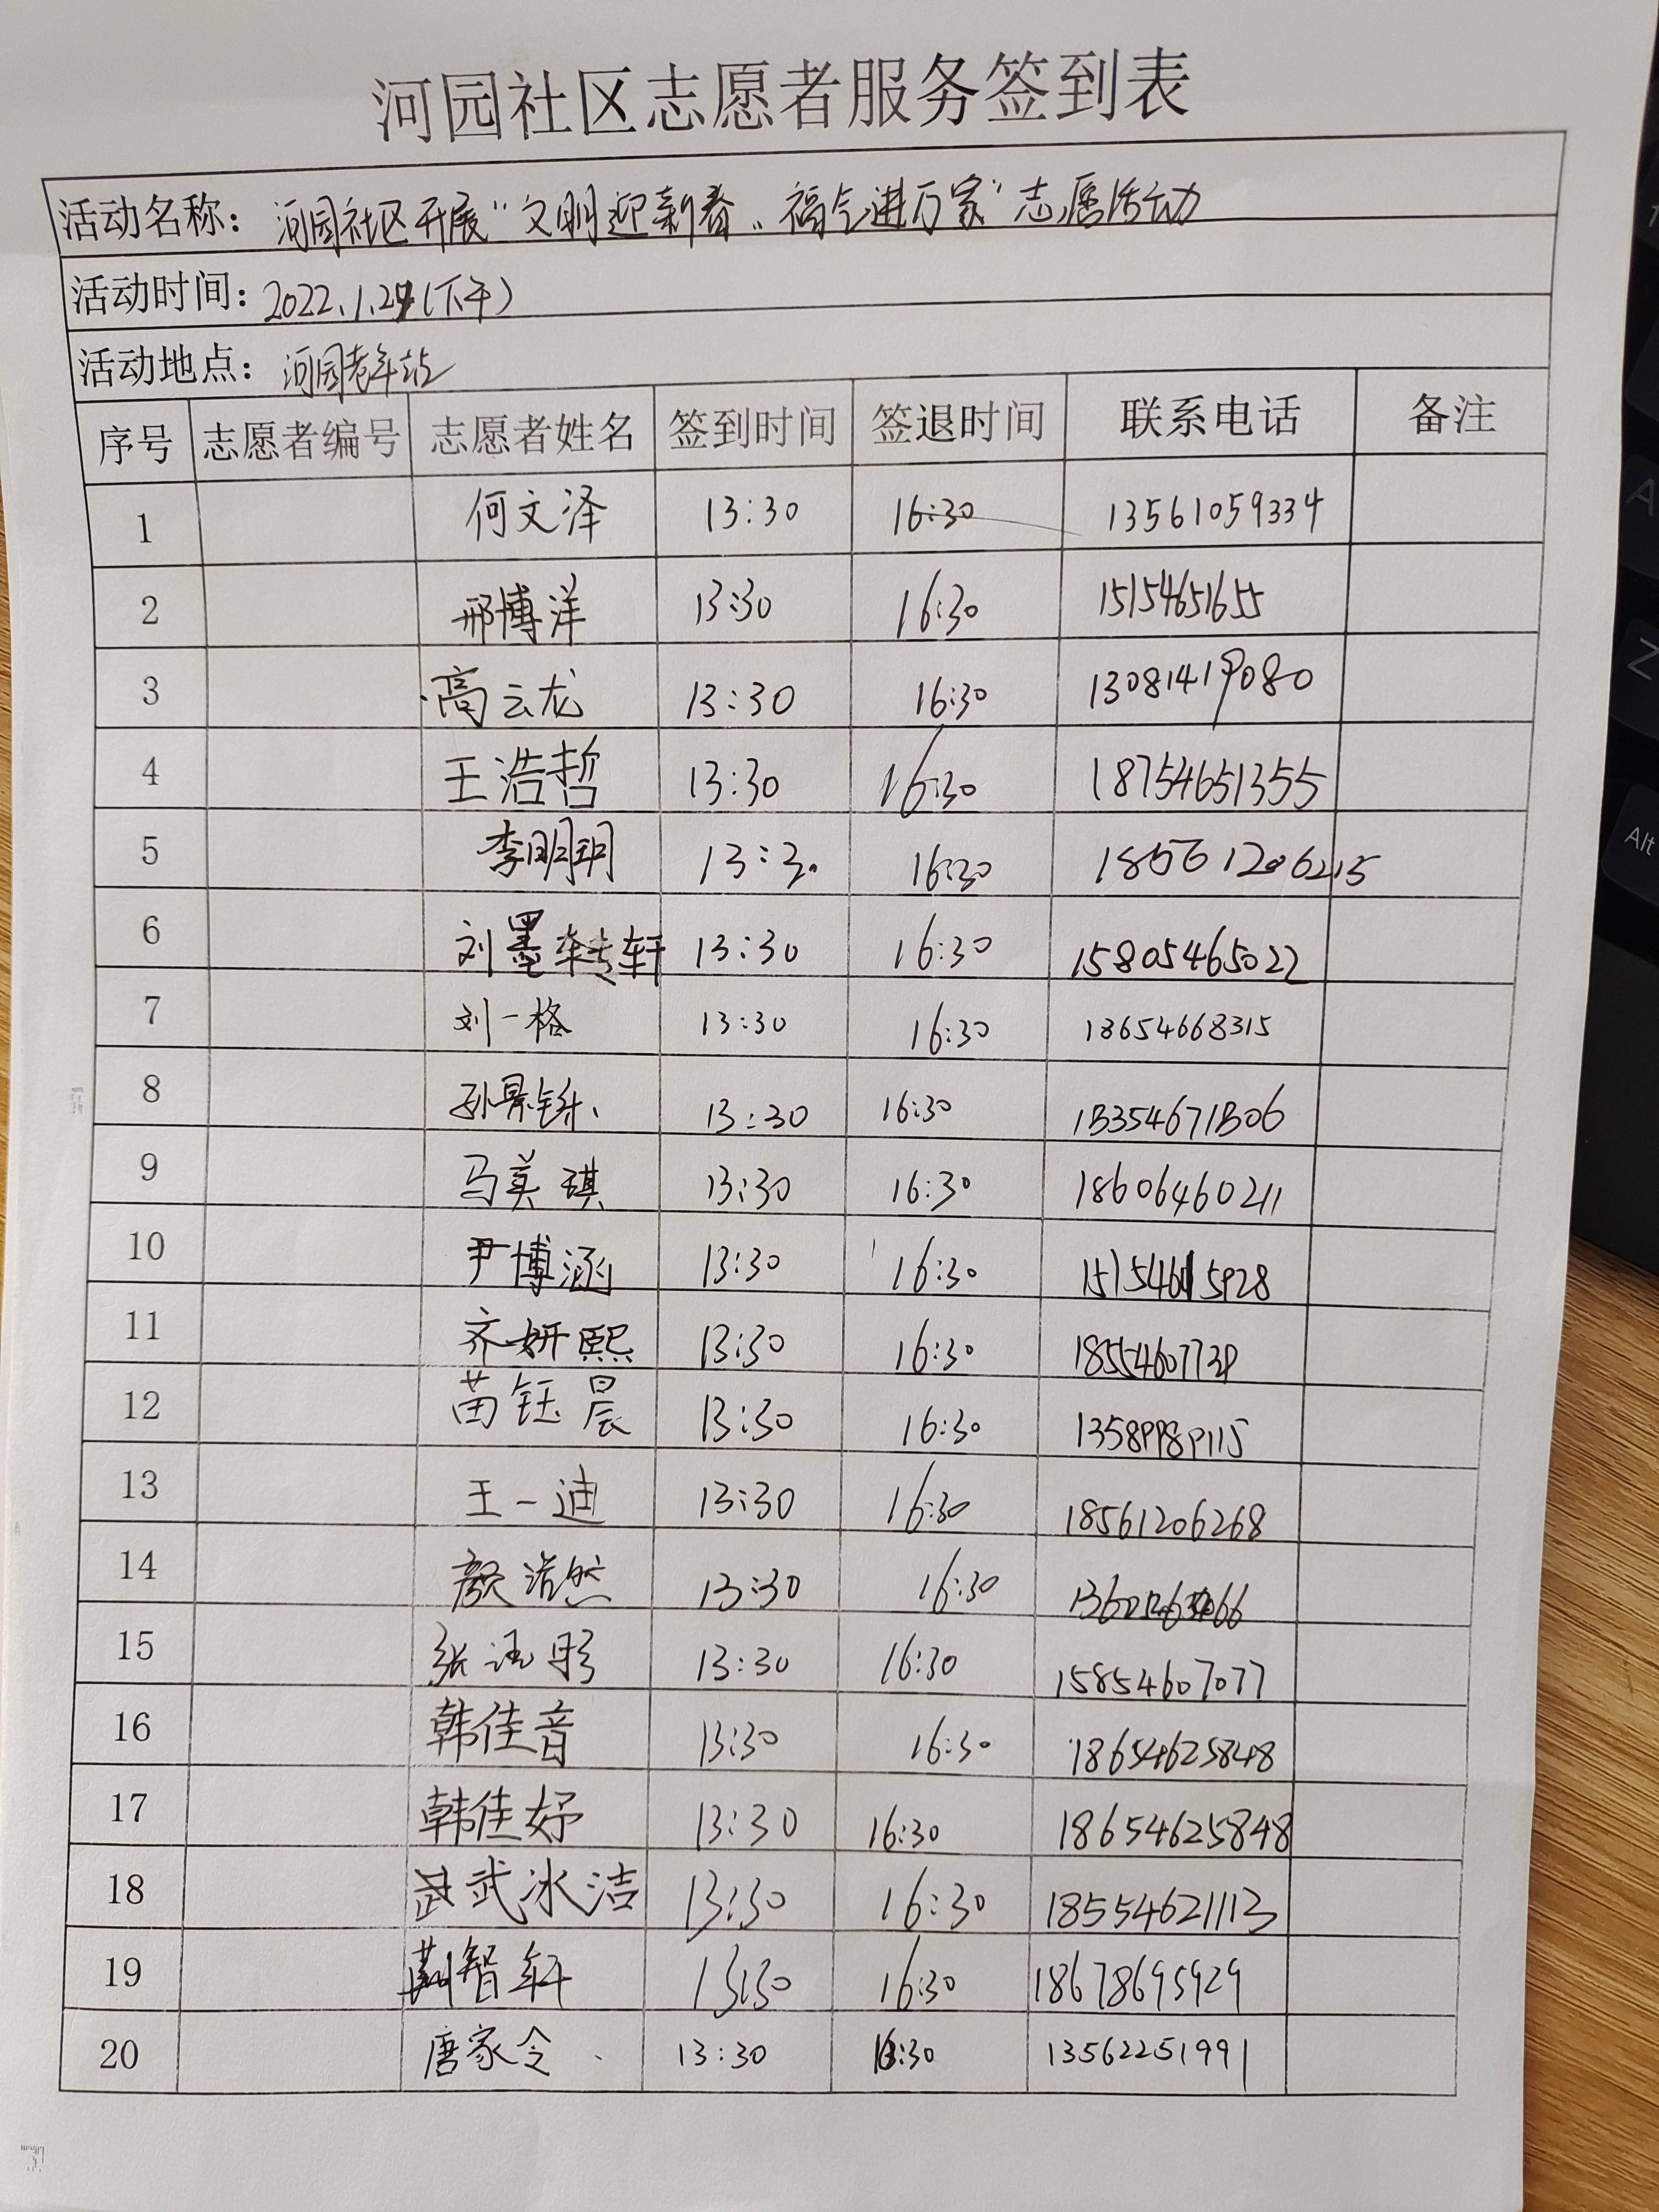 河园社区志愿者服务签到表
活动名称：河园社区开展“文明迎新春，福气进万家”志愿活动
活动时间：2022.1.29（下午）
活动地点：河园老年站
序号 志愿者编号 志愿者姓名 签到时间 签退时间 联系电话 备注
1 何文泽 13:30 16:30 13561059334
2 邢博洋 13:30 16:30 15154651655
3 高云龙 13:30 16:30 13081419080
4 王浩哲 13:30 16:30 18754651355
5 李明玥 13:30 16:30 18561206215
6 刘墨轩 13:30 16:30 15805465022
7 刘一格 13:30 16:30 18654668315
8 13:30 16:30
9 马美琪 13:30 16:30 18606460211
10 尹博涵 13:30 16:30
11 齐妍熙 13:30 16:30 18554607739
12 苗钰晨 13:30 16:30 13589989115
13 王一迪 13:30 16:30 18561206268
14 颜浩然 13:30 16:30
15 13:30 16:30 15854607077
16 韩佳音 13:30 16:30 18654625848
17 韩佳妤 13:30 16:30 18654625848
18 武冰洁 13:30 16:30 18554621113
19 智轩 13:30 16:30 18678695929
20 唐家令 13:30 16:30 13562251991